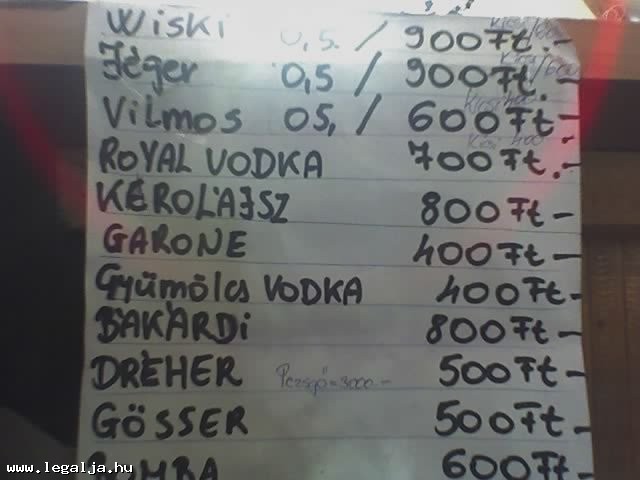 Wiski 0,5. / 900 Ft.-
Jéger 0,5 / 900 Ft.-
Vilmos 05, / 600 Ft.-
ROYAL VODKA 700 Ft.-
KÉROLAJSZ 800 Ft-
GARONE 400 Ft-
Gyümölcs VODKA 400 Ft-
BAKARDi 800 Ft-
DREHER Pezsgő=3000- 500 Ft-
GÖSSER 500 Ft-
BOMBA 600 Ft-
www.legalja.hu